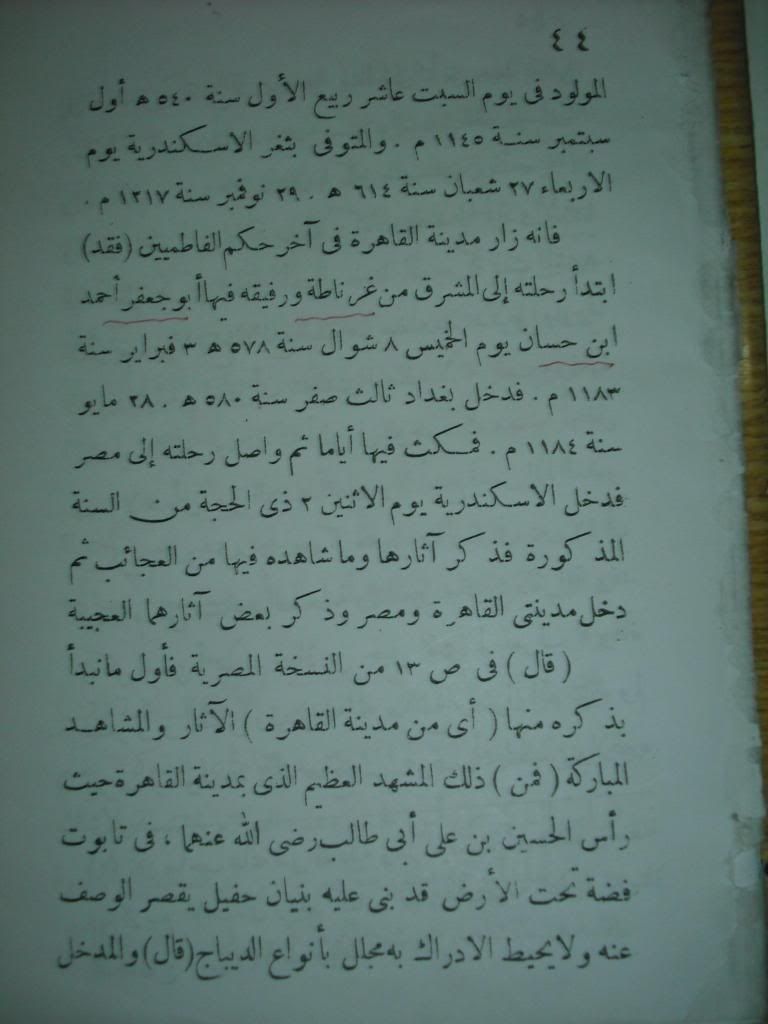 ٤٤
المولود فى يوم السبت عاشر ربيع الأول سنة ٥٤٠ ھ أول
سبتمبر سنة ١١٤٥ م . والمتوفى بثغر الاسكندرية يوم
الاربعاء ٢٧ شعبان سنة ٦١٤ ھ . ٢٩ نوفمبر سنة ١٢١٧ م .
فانه زار مدينة القاهرة فى آخر حكم الفاطميين (فقد)
ابتدأ رحلته إلى المشرق من غرناطة ورفيقه فيها أبو جعفر أحمد
ابن حسان يوم الخميس ٨ شوال سنة ٥٧٨ ھ ٣ فبراير سنة
١١٨٣ م . فدخل بغداد ثالث صفر سنة ٥٨٠ ھ . ٢٨ مايو
سنة ١١٨٤ م . فمكث فيها أياما ثم واصل رحلته إلى مصر
فدخل الاسكندرية يوم الاثنين ٢ ذى الحجة من السنة
المذكورة فذكر آثارها وما شاهده فيها من العجائب ثم
دخل مدينتى القاهرة ومصر وذكر بعض آثارهما العجيبة
( قال ) فى ص ١٣ من النسخة المصرية فأول مانبدأ
بذكره منها ( أى من مدينة القاهرة ) الآثار والمشاهد
المباركة ( فمن ) ذلك المشهد العظيم الذى بمدينة القاهرة حيث
رأس الحسين بن على أبى طالب رضى الله عنهما ، فى تابوت
فضة تحت الأرض قد بنى عليه بنيان حفيل يقصر الوصف
عنه ولا يحيط الادراك به مجلل بأنواع الديباج (قال) والمدخل